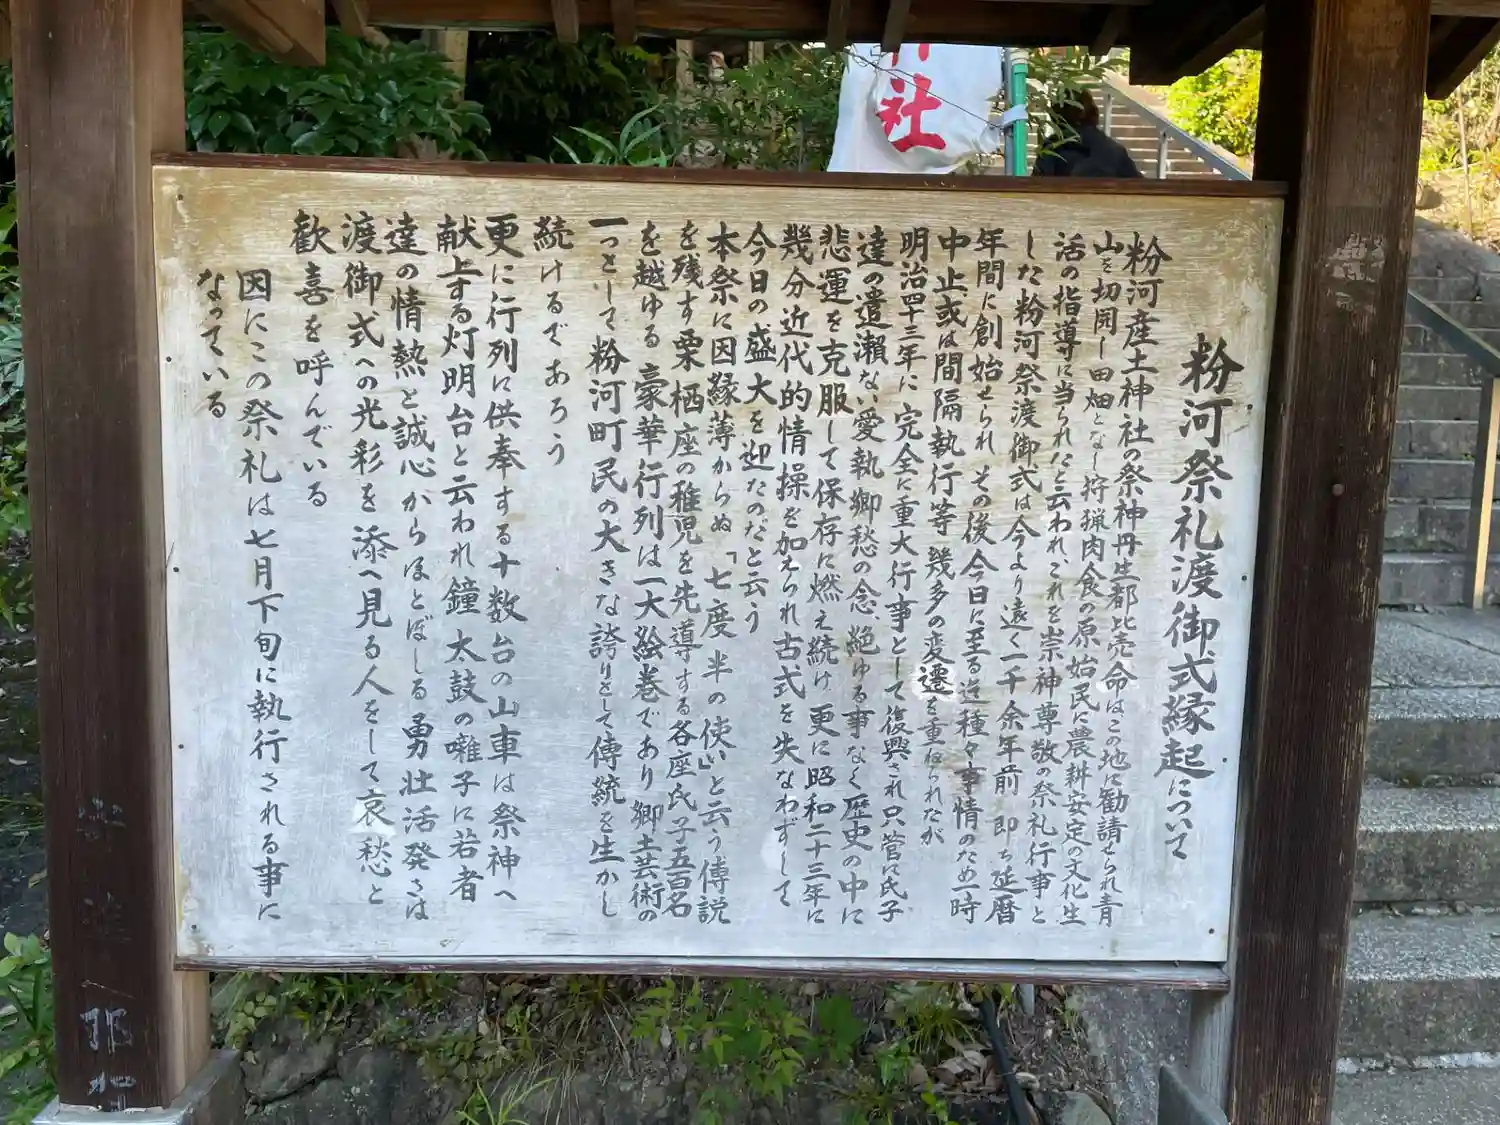 粉河祭礼渡御式縁起について
粉河産土神社の祭神丹生都比売命はこの地に勧請せられ青
山を切開し田畑となし狩猟肉食の原始民に農耕安定の文化生
活の指導に当られたと云われこれを崇神尊敬の祭礼行事と
した粉河祭渡御式は今より遠く一千余年前即ち延暦
年間に創始せられ その後今日に至る迄種々事情のため一時
中止或は間隔執行等幾多の変遷を重ねられたが
明治四十三年に完全に重大行事として復興され只管に氏子
達の遣瀬ない愛執郷愁の念、絶ゆる事なく歴史の中に
悲運を克服して保存に燃え続け更に昭和二十三年に
幾分近代的情操を加えられ古式を失なわずして
今日の盛大を迎たのだと云う
本祭に因縁薄からぬ「七度半の使い」と云う傳説
を残す栗栖座の稚児を先導する各座氏子五百名
を越ゆる豪華行列は一大絵巻であり郷土芸術の
一つとして粉河町民の大きな誇りとして傳統を生かし
続けるであろう
更に行列に供奉する十数台の山車は祭神へ
献上する灯明台と云われ鐘太鼓の囃子に若者
達の情熱と誠心からほとばしる勇壮活発さは
渡御式への光彩を添へ見る人をして哀愁と
歓喜を呼んでいる
因にこの祭礼は七月下旬に執行される事に
なっている
社